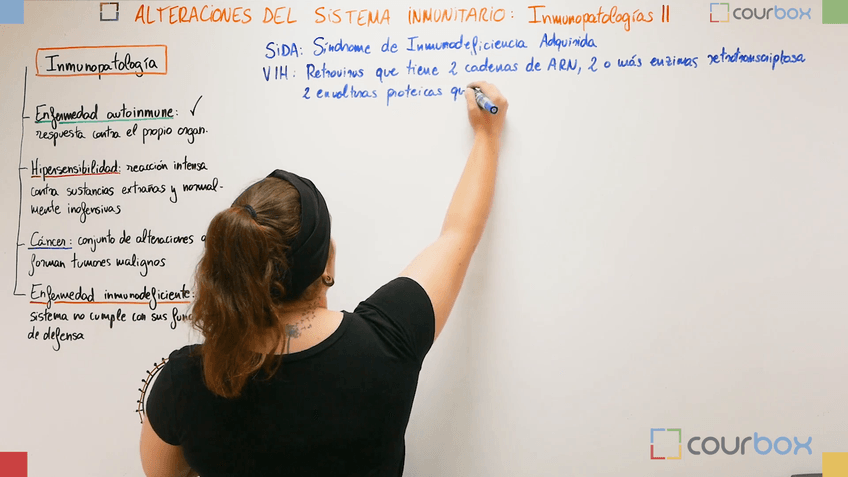 ALTERACIONES DEL SISTEMA INMUNITARIO: Inmunopatologías II
courbox
Inmunopatología
Enfermedad autoinmune: ✓
respuesta contra el propio organ.
Hipersensibilidad: reacción intensa
contra sustancias extrañas y normal-
mente inofensivas
Cáncer: conjunto de alteraciones
forman tumores malignos
Enfermedad inmunodeficiente:
sistema no cumple con sus
de defensa
SiDA: Síndrome de Inmunodeficiencia Adquirida
VIH: Retrovirus que tiene 2 cadenas de ARN, 2 o más enzimas retrotranscriptasa
2 envolturas proteicas
courbox